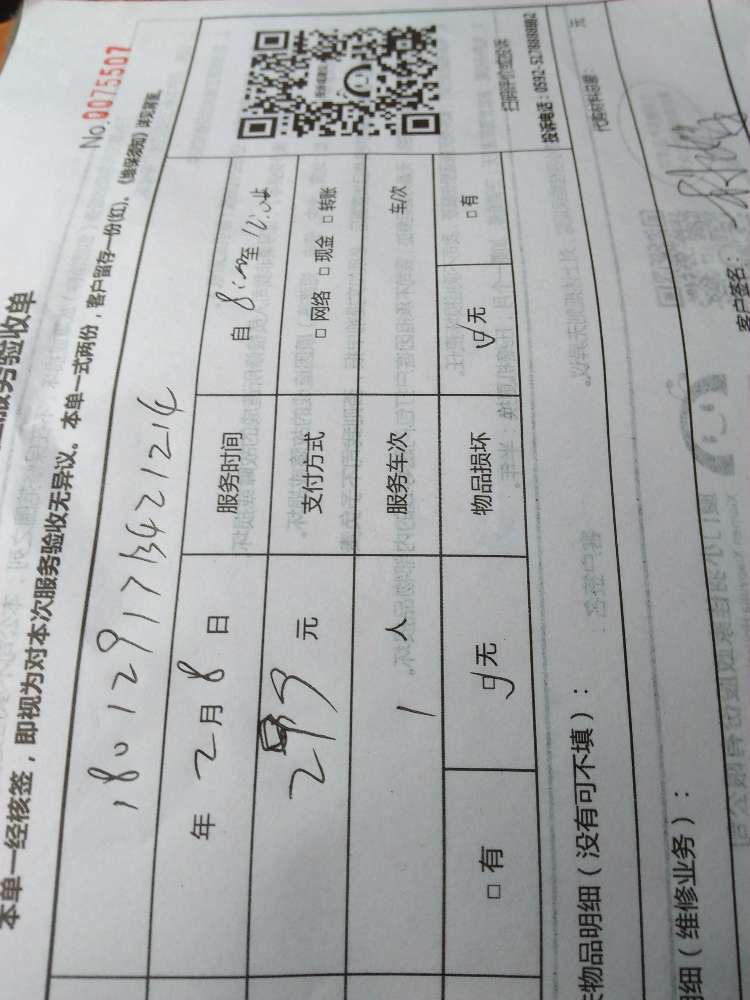 服务验收单
No.0075507
本单一经核签，即视为对本次服务验收无异议。本单一式两份，客户留存一份(红)。《维保须知》详见背面。
180129173421214
年 2 月 8 日 服务时间 自 8:00 至 12:00止
元 支付方式 □ 网络 □ 现金 □ 转账
1 人 服务车次 车/次
□ 有 ☑ 无 物品损坏 ☑ 无 □ 有
扫码评价或投诉
物品明细（没有可不填）：
元
细（维修业务）：
客户签名：